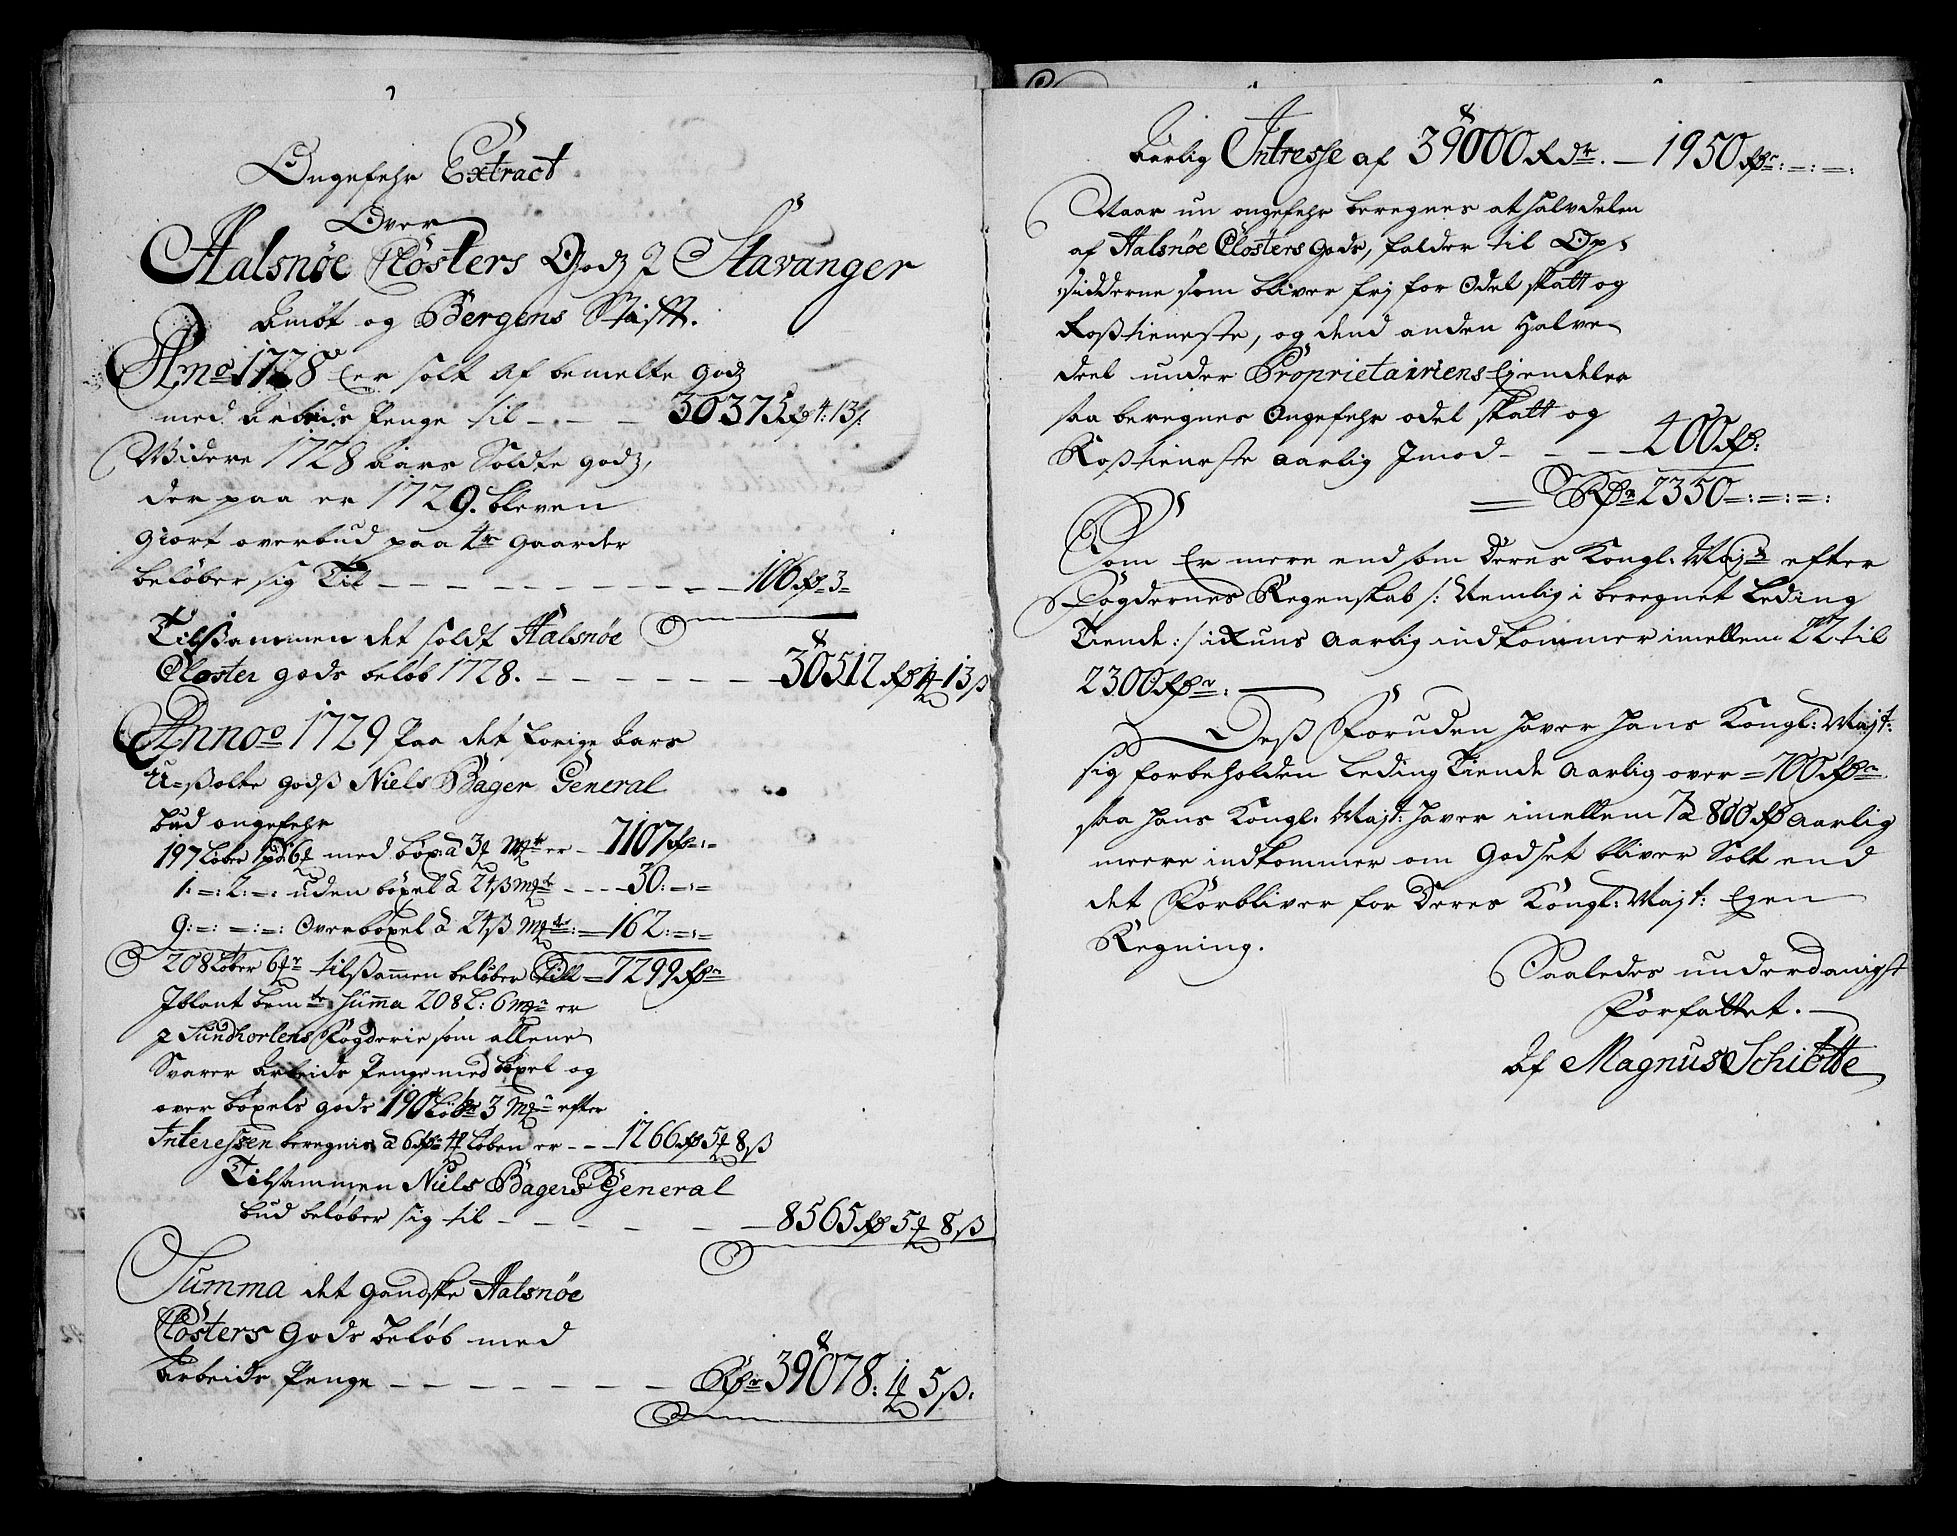 Ongefehr Extract
Over
Halsnøe Closters Godz J Stavanger
Amòt og Bergens Stifft.
Ano. 1728 Er solt af bemelte godz
med Arbeids Penge til - - - 30375 Rd 4: 13 s.
Widere 1728 Aars Soldte godz,
der paa er 1729. bleven
giort overbud paa 4re gaarder
beløber sig Til - - - - - - - - 106 Rd 3 =
Tilsammen det soldt Halsnøe
Closter gods beløb 1728. - - - - - - 30512 Rd 1 13 ß
Annoo 1729 Paa det forige Aars
U=ßolte godß Niels Bager General
bud ongefehr
197 Løber 6 med bøx: à 3 er - 7107 Rd =:=
1: =: 2: =: uden böxel à 24 ß - - - 30: =:=
9: =: =: =: Overböxel à 24 ß = 162: =:=
208 Løber 6 tilßammen beløber Till = 7299 Rdr
Jblant bemte Summa 208 L: 6 er
J Sundhorlens Fogderie som allene
Svarer Arbeids Penge med böxel og
over böxels gods 190 Løb 3 efter
Interessen beregnis à 6 Løben er - - - 1266 Rd 5 8 ß
Tilsammen Niels Bagers General
bud beløber sig til - - - - - - 8565 Rd 5 8 ß
Summa det gandske Halsnöe
Closters Gods beløb med
Arbeids Penge - - - - - - - Rdr 39078: 1 5 ß.
Aarlig Intresse af 39000 Rdr. - 1950 Rdr: =: =:
Naar nu ongefehr beregnes at halvdelen
af Halsnöe Closters Gods, falder til Op-
sidderne som bliver frj for Odel skatt og
Roßtieneste, og dend anden Halve
deel under Proprietairiens Ejendeler
saa beregnes Ongefehr odel skatt og
Roßtieneste Aarlig Jmod - - - 400 Rd:
Rdr 2350 =: =: =:
Som Er mere end som Deres Kongl: Majts efter
Fogdernes Regenskab /: Nemlig i beregnet Leding
Tiende :/ ikuns Aarlig indkommer imellem 22 til
2300 Rdr:
Deß Foruden haver hans Kongl: Majt:
sig forbeholden Leding Tiende Aarlig over = 700 Rdr
saa hans Kongl: Majt: haver imellem 7 à 800 Rd Aarlig
meere indkommer om Godset bliver Solt end
det Forbliver for Deres Kongl: Majt: Egen
Regning.
Saaledes underdanigst
Forfattet.
Af Magnus Schiøtte